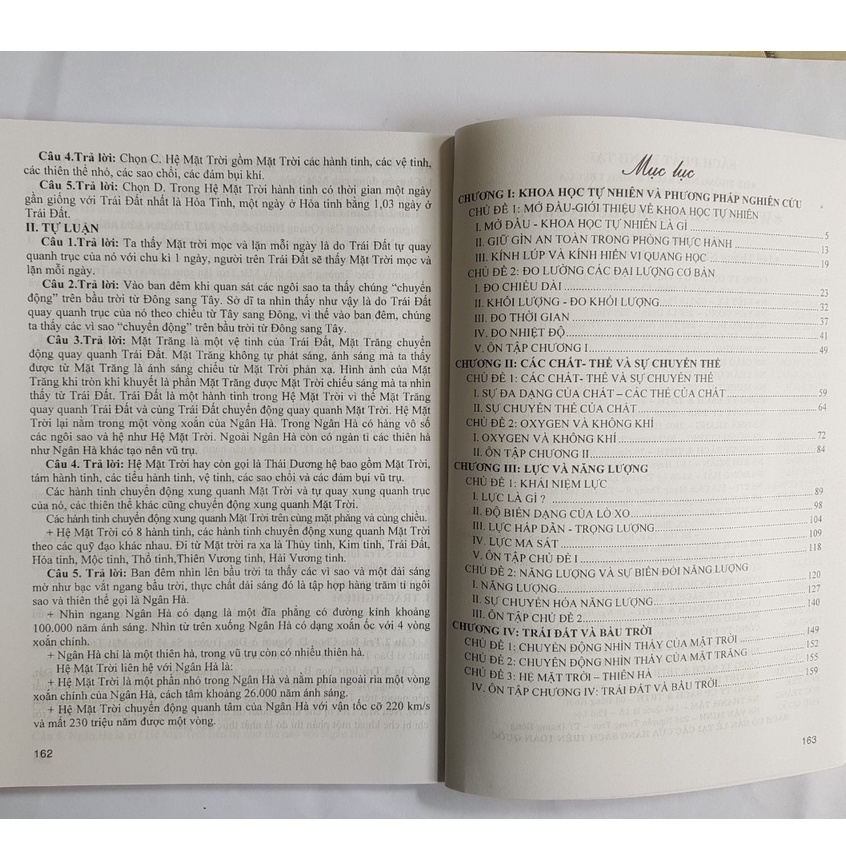 Câu 4.Trả lời: Chọn C. Hệ Mặt Trời gồm Mặt Trời các hành tinh, các vệ tinh,
các thiên thể nhỏ, các sao chổi, các đám bụi khí.
Câu 5.Trả lời: Chọn D. Trong Hệ Mặt Trời hành tinh có thời gian một ngày
gần giống với Trái Đất nhất là Hỏa Tinh, một ngày ở Hỏa tinh bằng 1,03 ngày ở
Trái Đất.
II. TỰ LUẬN
Câu 1.Trả lời: Ta thấy Mặt trời mọc và lặn mỗi ngày là do Trái Đất tự quay
quanh trục của nó với chu kì 1 ngày, người trên Trái Đất sẽ thấy Mặt Trời mọc và
lặn mỗi ngày.
Câu 2.Trả lời: Vào ban đêm khi quan sát các ngôi sao ta thấy chúng “chuyển
động” trên bầu trời từ Đông sang Tây. Sở dĩ ta nhìn thấy như vậy là do Trái Đất
quay quanh trục của nó theo chiều từ Tây sang Đông, vì thế vào ban đêm, chúng
ta thấy các vì sao “chuyển động” trên bầu trời từ Đông sang Tây.
Câu 3.Trả lời: Mặt Trăng là một vệ tinh của Trái Đất, Mặt Trăng chuyển
động quay quanh Trái Đất. Mặt Trăng không tự phát sáng, ánh sáng mà ta thấy
được từ Mặt Trăng là ánh sáng chiếu từ Mặt Trời phản xạ. Hình ảnh của Mặt
Trăng khi tròn khi khuyết là phần Mặt Trăng được Mặt Trời chiếu sáng mà ta nhìn
thấy từ Trái Đất. Trái Đất là một hành tinh trong Hệ Mặt Trời vì thế Mặt Trăng
quay quanh Trái Đất và cùng Trái Đất chuyển động quay quanh Mặt Trời. Hệ Mặt
Trời lại nằm trong một vòng xoắn của Ngân Hà. Trong Ngân Hà có hàng vô số
các ngôi sao và hệ như Hệ Mặt Trời. Ngoài Ngân Hà còn có ngàn tỉ các thiên hà
như Ngân Hà khác tạo nên vũ trụ.
Câu 4. Trả lời: Hệ Mặt Trời hay còn gọi là Thái Dương hệ bao gồm Mặt Trời,
tám hành tinh, các tiểu hành tinh, vệ tinh, các sao chổi và các đám bụi vũ trụ.
Các hành tinh chuyển động xung quanh Mặt Trời và tự quay xung quanh trục
của nó, các thiên thể khác cũng chuyển động xung quanh Mặt Trời.
Các hành tinh chuyển động xung quanh Mặt Trời trên cùng mặt phẳng và cùng chiều.
+ Hệ Mặt Trời có 8 hành tinh, các hành tinh chuyển động xung quanh Mặt Trời
theo các quỹ đạo khác nhau. Đi từ Mặt Trời ra xa là Thủy tinh, Kim tinh, Trái Đất,
Hỏa tinh, Mộc tinh, Thổ tinh,Thiên Vương tinh, Hải Vương tinh.
Câu 5. Trả lời: Ban đêm nhìn lên bầu trời ta thấy các vì sao và một dải sáng
mờ như bạc vắt ngang bầu trời, thực chất dải sáng đó là tập hợp hàng trăm tỉ ngôi
sao và thiên thể gọi là Ngân Hà.
+ Nhìn ngang Ngân Hà có dạng là một đĩa phẳng có đường kính khoảng
100.000 năm ánh sáng. Nhìn từ trên xuống Ngân Hà có dạng xoắn ốc với 4 vòng
xoắn chính.
+ Ngân Hà chỉ là một thiên hà, trong vũ trụ còn có nhiều thiên hà.
- Hệ Mặt Trời liên hệ với Ngân Hà là:
+ Hệ Mặt Trời là một phần nhỏ trong Ngân Hà và nằm phía ngoài rìa một vòng
xoắn chính của Ngân Hà, cách tâm khoảng 26.000 năm ánh sáng.
+ Hệ Mặt Trời chuyển động quanh tâm của Ngân Hà với vận tốc cỡ 220 km/s
và mất 230 triệu năm được một vòng.
162
Mục lục
CHƯƠNG I: KHOA HỌC TỰ NHIÊN VÀ PHƯƠNG PHÁP NGHIÊN CỨU
CHỦ ĐỀ 1: MỞ ĐẦU-GIỚI THIỆU VỀ KHOA HỌC TỰ NHIÊN
I. MỞ ĐẦU - KHOA HỌC TỰ NHIÊN LÀ GÌ 5
II. GIỮ GÌN AN TOÀN TRONG PHÒNG THỰC HÀNH 13
III. KÍNH LÚP VÀ KÍNH HIỂN VI QUANG HỌC 19
CHỦ ĐỀ 2: ĐO LƯỜNG CÁC ĐẠI LƯỢNG CƠ BẢN
I. ĐO CHIỀU DÀI 23
II. KHỐI LƯỢNG - ĐO KHỐI LƯỢNG 32
III. ĐO THỜI GIAN 37
IV. ĐO NHIỆT ĐỘ 41
V. ÔN TẬP CHƯƠNG I 49
CHƯƠNG II: CÁC CHẤT- THỂ VÀ SỰ CHUYỂN THỂ
CHỦ ĐỀ 1: CÁC CHẤT- THỂ VÀ SỰ CHUYỂN THỂ
I. SỰ ĐA DẠNG CỦA CHẤT – CÁC THỂ CỦA CHẤT 59
II. SỰ CHUYỂN THỂ CỦA CHẤT 64
CHỦ ĐỀ 2: OXYGEN VÀ KHÔNG KHÍ
I. OXYGEN VÀ KHÔNG KHÍ 72
II. ÔN TẬP CHƯƠNG II 84
CHƯƠNG III: LỰC VÀ NĂNG LƯỢNG
CHỦ ĐỀ 1: KHÁI NIỆM LỰC
I. LỰC LÀ GÌ ? 89
II. ĐỘ BIẾN DẠNG CỦA LÒ XO 98
III. LỰC HẤP DẪN - TRỌNG LƯỢNG 104
IV. LỰC MA SÁT 109
V. ÔN TẬP CHỦ ĐỀ I 118
CHỦ ĐỀ 2: NĂNG LƯỢNG VÀ SỰ BIẾN ĐỔI NĂNG LƯỢNG
I. NĂNG LƯỢNG 120
II. SỰ CHUYỂN HÓA NĂNG LƯỢNG 127
III. ÔN TẬP CHỦ ĐỀ 2 140
CHƯƠNG IV: TRÁI ĐẤT VÀ BẦU TRỜI
CHỦ ĐỀ 1: CHUYỂN ĐỘNG NHÌN THẤY CỦA MẶT TRỜI 149
CHỦ ĐỀ 2: CHUYỂN ĐỘNG NHÌN THẤY CỦA MẶT TRĂNG 152
CHỦ ĐỀ 3: HỆ MẶT TRỜI – THIÊN HÀ 155
IV. ÔN TẬP CHƯƠNG IV: TRÁI ĐẤT VÀ BẦU TRỜI 159
163